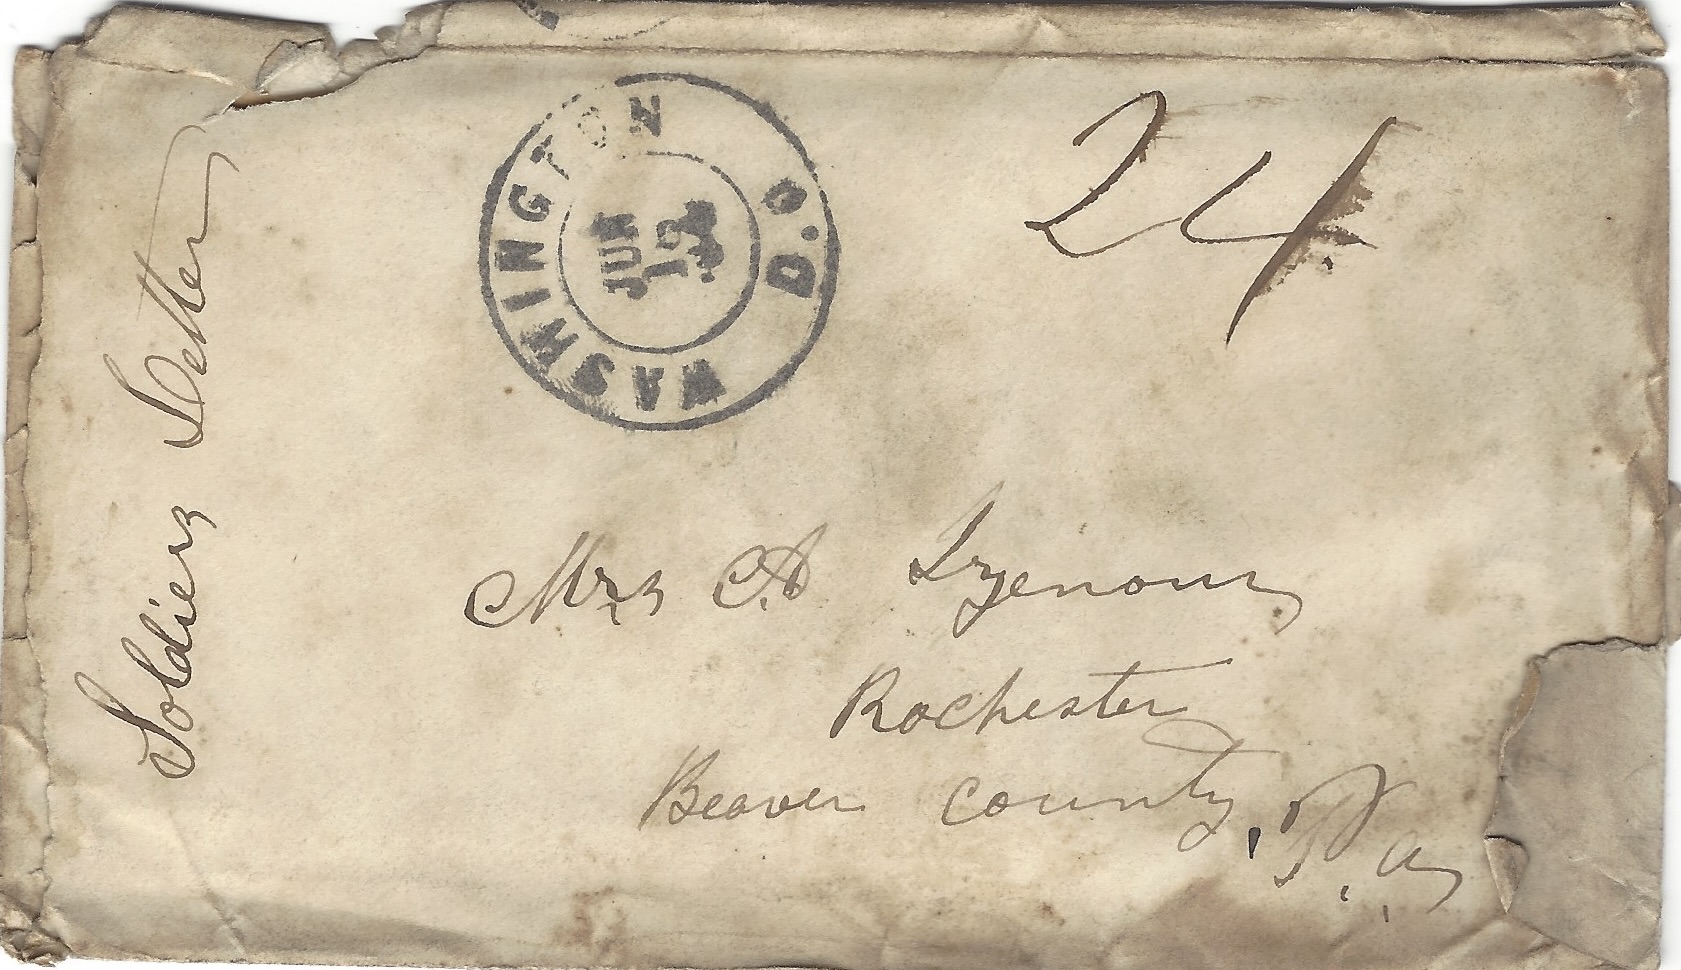 Soldiers Letter
WASHINGTON D.C.
JUN
24
Mrs A
Rochester
Beaver County, Pa